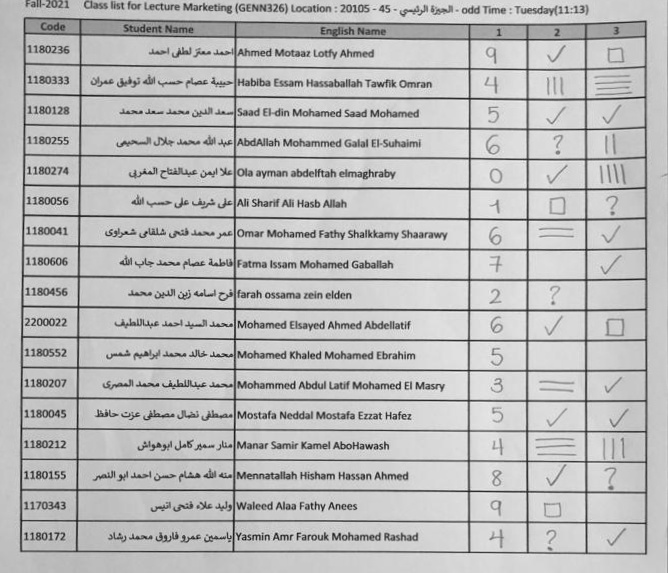 Fall-2021 Class list for Lecture Marketing (GENN326) Location : 20105 - 45 - الجيزة الرئيسي - odd Time : Tuesday(11:13)
Code Student Name English Name 1 2 3
1180236 احمد معتز لطفى احمد Ahmed Motaaz Lotfy Ahmed 9 ✓ □
1180333 حبيبة عصام حسب الله توفيق عمران Habiba Essam Hassaballah Tawfik Omran 4 ||| ☰
1180128 سعد الدين محمد سعد محمد Saad El-din Mohamed Saad Mohamed 5 ✓ ✓
1180255 عبد الله محمد جلال السحيمى AbdAllah Mohammed Galal El-Suhaimi 6 ? ||
1180274 علا ايمن عبدالفتاح المغربى Ola ayman abdelftah elmaghraby 0 ✓ ||||
1180056 على شريف على حسب الله Ali Sharif Ali Hasb Allah 1 □ ?
1180041 عمر محمد فتحى شلقامى شعراوى Omar Mohamed Fathy Shalkkamy Shaarawy 6 = ✓
1180606 فاطمة عصام محمد جاب الله Fatma Issam Mohamed Gaballah 7 ✓
1180456 فرح اسامه زين الدين محمد farah ossama zein elden 2 ?
2200022 محمد السيد احمد عبداللطيف Mohamed Elsayed Ahmed Abdellatif 6 ✓ □
1180552 محمد خالد محمد ابراهيم شمس Mohamed Khaled Mohamed Ebrahim 5
1180207 محمد عبداللطيف محمد المصرى Mohammed Abdul Latif Mohamed El Masry 3 = ✓
1180045 مصطفى نضال مصطفى عزت حافظ Mostafa Neddal Mostafa Ezzat Hafez 5 ✓ ✓
1180212 منار سمير كامل ابوهواش Manar Samir Kamel AboHawash 4 ☰ |||
1180155 منه الله هشام حسن احمد ابو النصر Mennatallah Hisham Hassan Ahmed 8 ✓ ?
1170343 وليد علاء فتحى انيس Waleed Alaa Fathy Anees 9 □
1180172 ياسمين عمرو فاروق محمد رشاد Yasmin Amr Farouk Mohamed Rashad 4 ? ✓